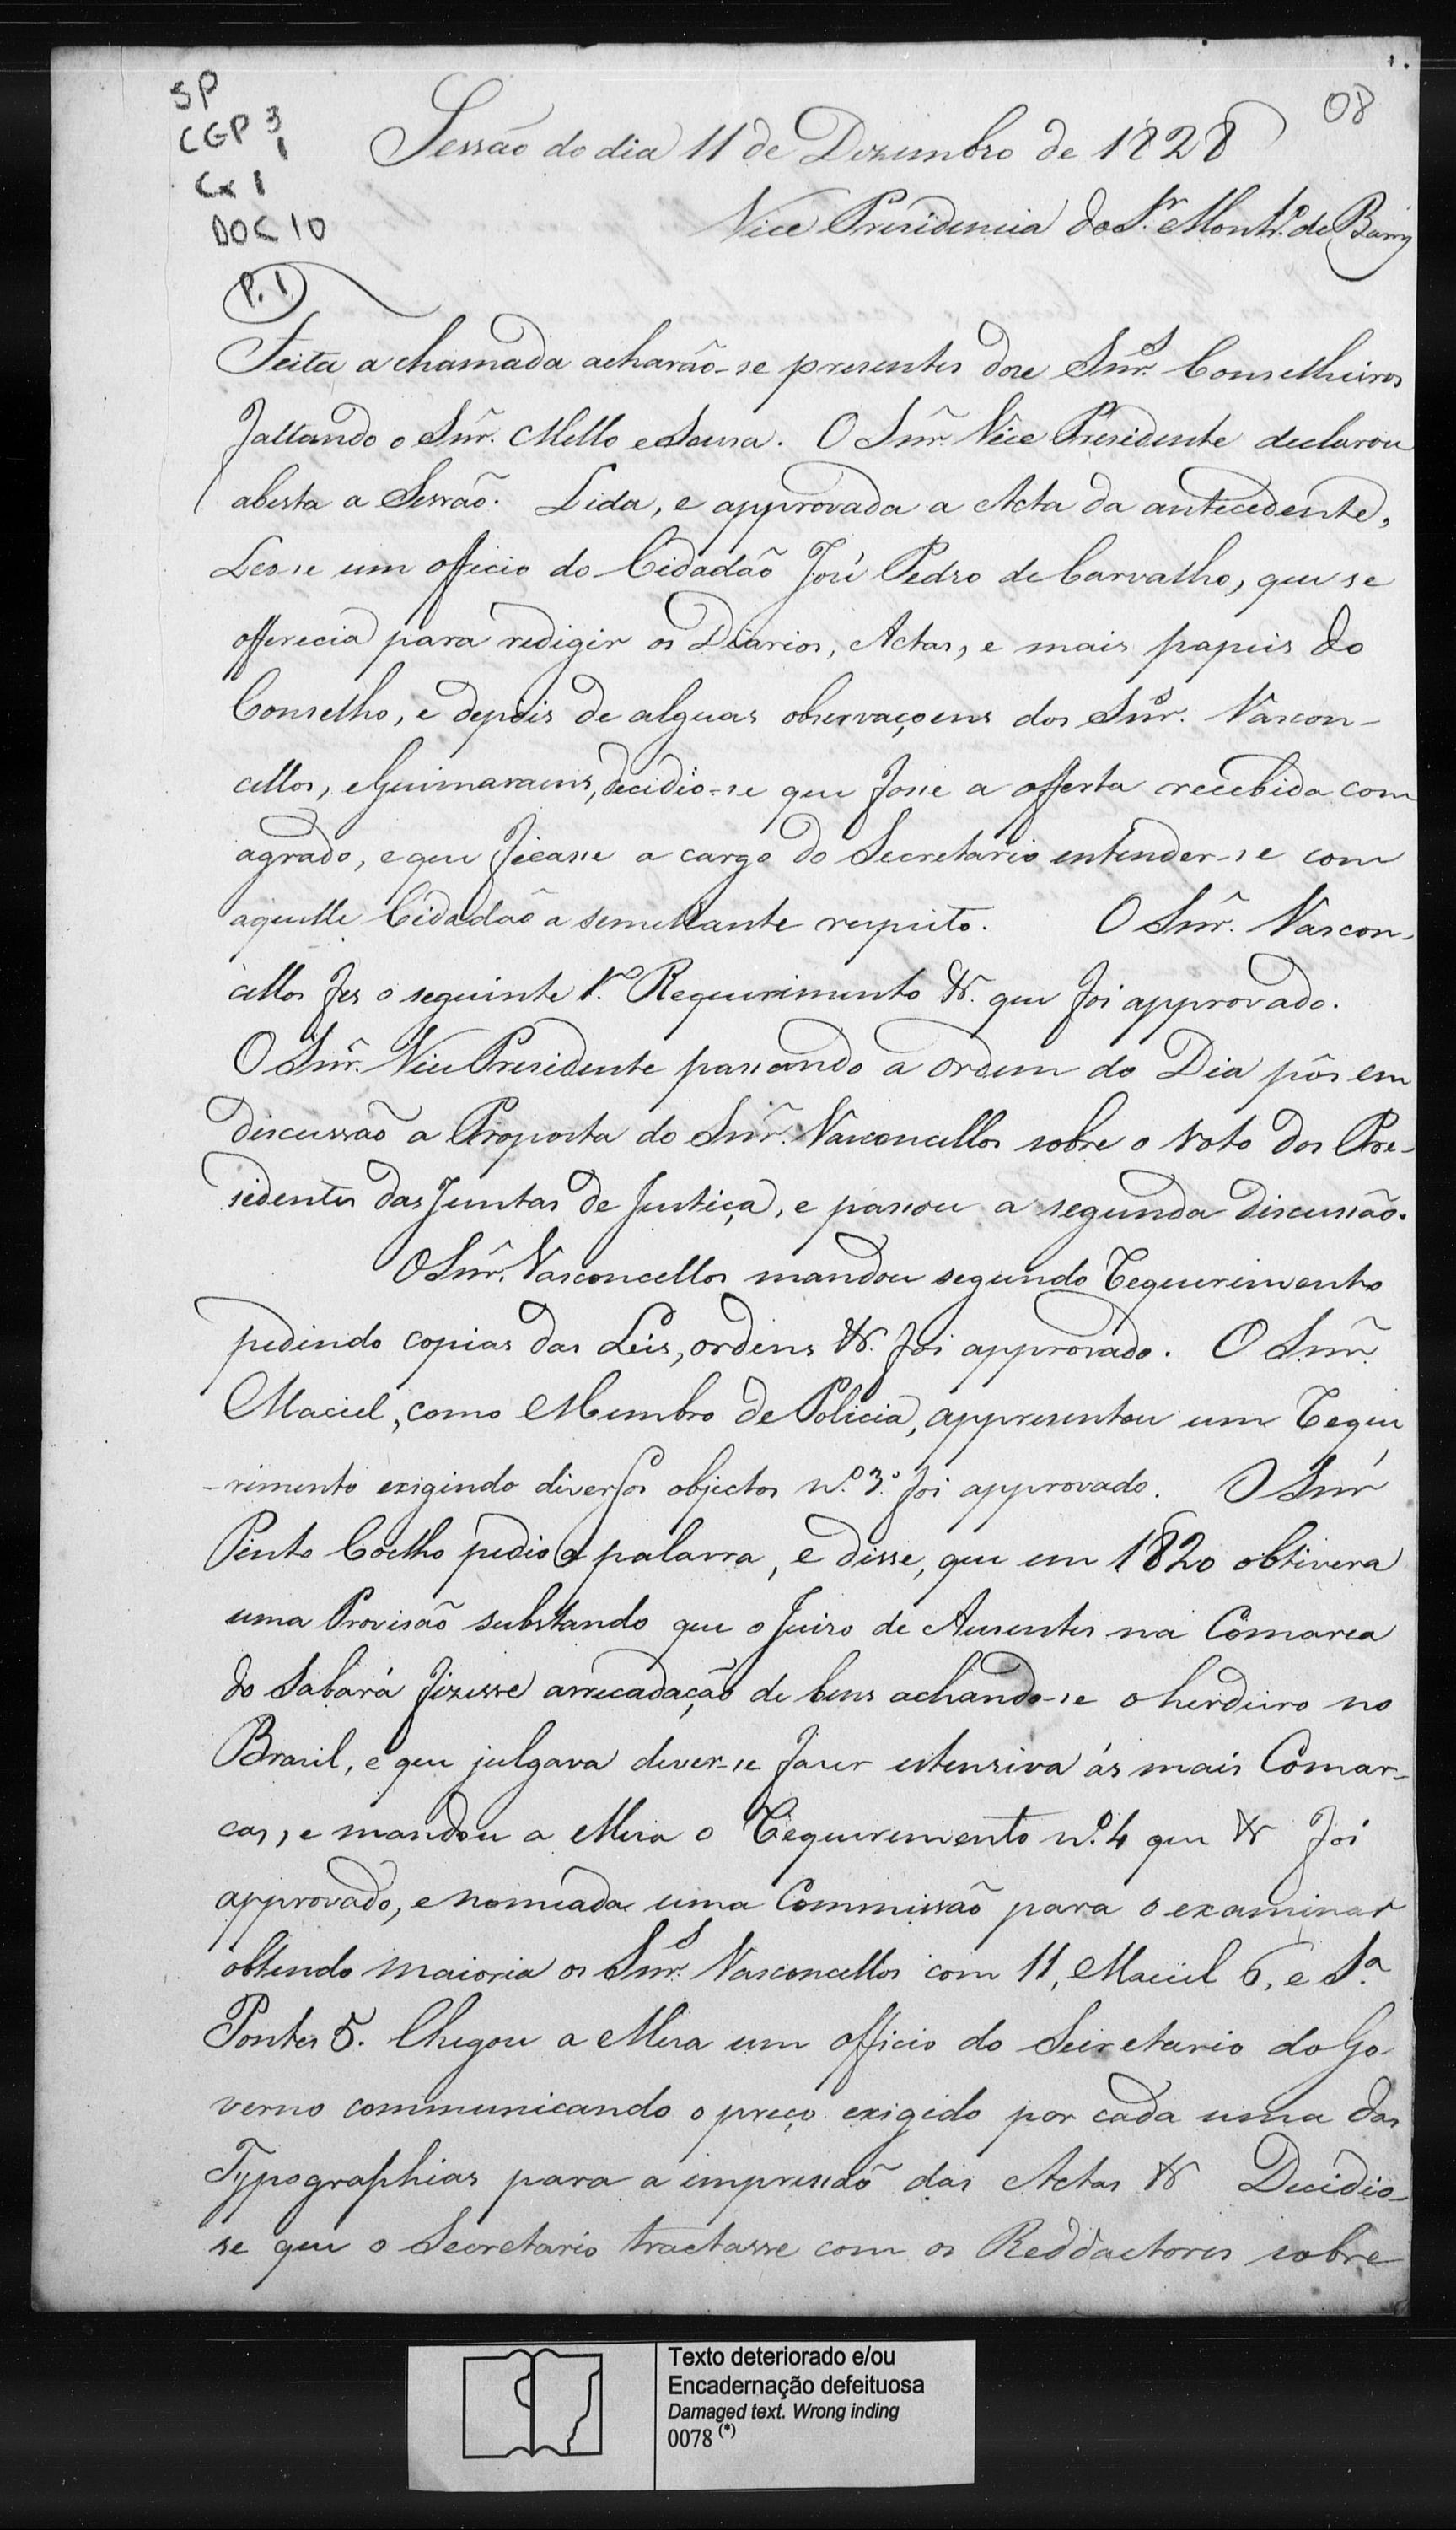 SP
CGP 3
1
Cx 1
DOC 10
P. 1
08
Sessão do dia 11 de Dezembro de 1828
Vice Presidencia do Sr. Montro. de Barros
Feita a chamada acharão-se presentes doze Snrs. Conselheiros
faltando o Snr. Mello e Souza. O Snr. Vice Presidente declarou
aberta a Sessão. Lida, e approvada a Acta da antecedente,
Leo-se um officio do Cidadão José Pedro de Carvalho, que se
offerecia para redigir os Diarios, Actas, e mais papeis do
Conselho, e depois de alguas observaçoens dos Snrs. Vascon-
cellos, e Guimaraens, decidio-se que fosse a offerta recebida com
agrado, e que ficasse a cargo do Secretario entender-se com
aquelle Cidadão a semelhante respeito. O Snr. Vascon-
cellos fez o seguinte 1.º Requerimento &. que foi approvado.
O Snr. Vice Presidente passando a ordem do Dia pôs em
discussão a Proposta do Snr. Vasconcellos sobre o voto dos Pre-
sidentes das Juntas de Justiça, e passou a segunda discussão.
O Snr. Vasconcellos mandou segundo Requerimento
pedindo copias das Leis, ordens &. foi approvado. O Snr.
Maciel, como Membro de Policia, appresentou um Reque
-rimento exigindo diversos objectos n.º 3.º foi approvado. O Snr
Pinto Coelho pedio a palavra, e disse, que em 1820 obtivera
uma Provisão substando que o Juizo de Ausentes na Comarca
do Sabará fizesse arrecadação de bens achando-se o herdeiro no
Brazil, e que julgava dever-se fazer estensiva ás mais Comar-
cas, e mandou a Meza o Requerimento n.º 4 que & foi
approvado, e nomeada uma Commissão para o examinar
obtendo maioria os Snrs. Vasconcellos com 11, Maciel 6, e Sa.
Pontes 5. Chegou a Meza um officio do Secretario do Go-
verno communicando o preço exigido por cada uma das
Typographias para a impressão das Actas & Decidio-
se que o Secretario tractasse com os Reddactores sobre
Texto deteriorado e/ou
Encadernação defeituosa
Damaged text. Wrong inding
0078 (*)